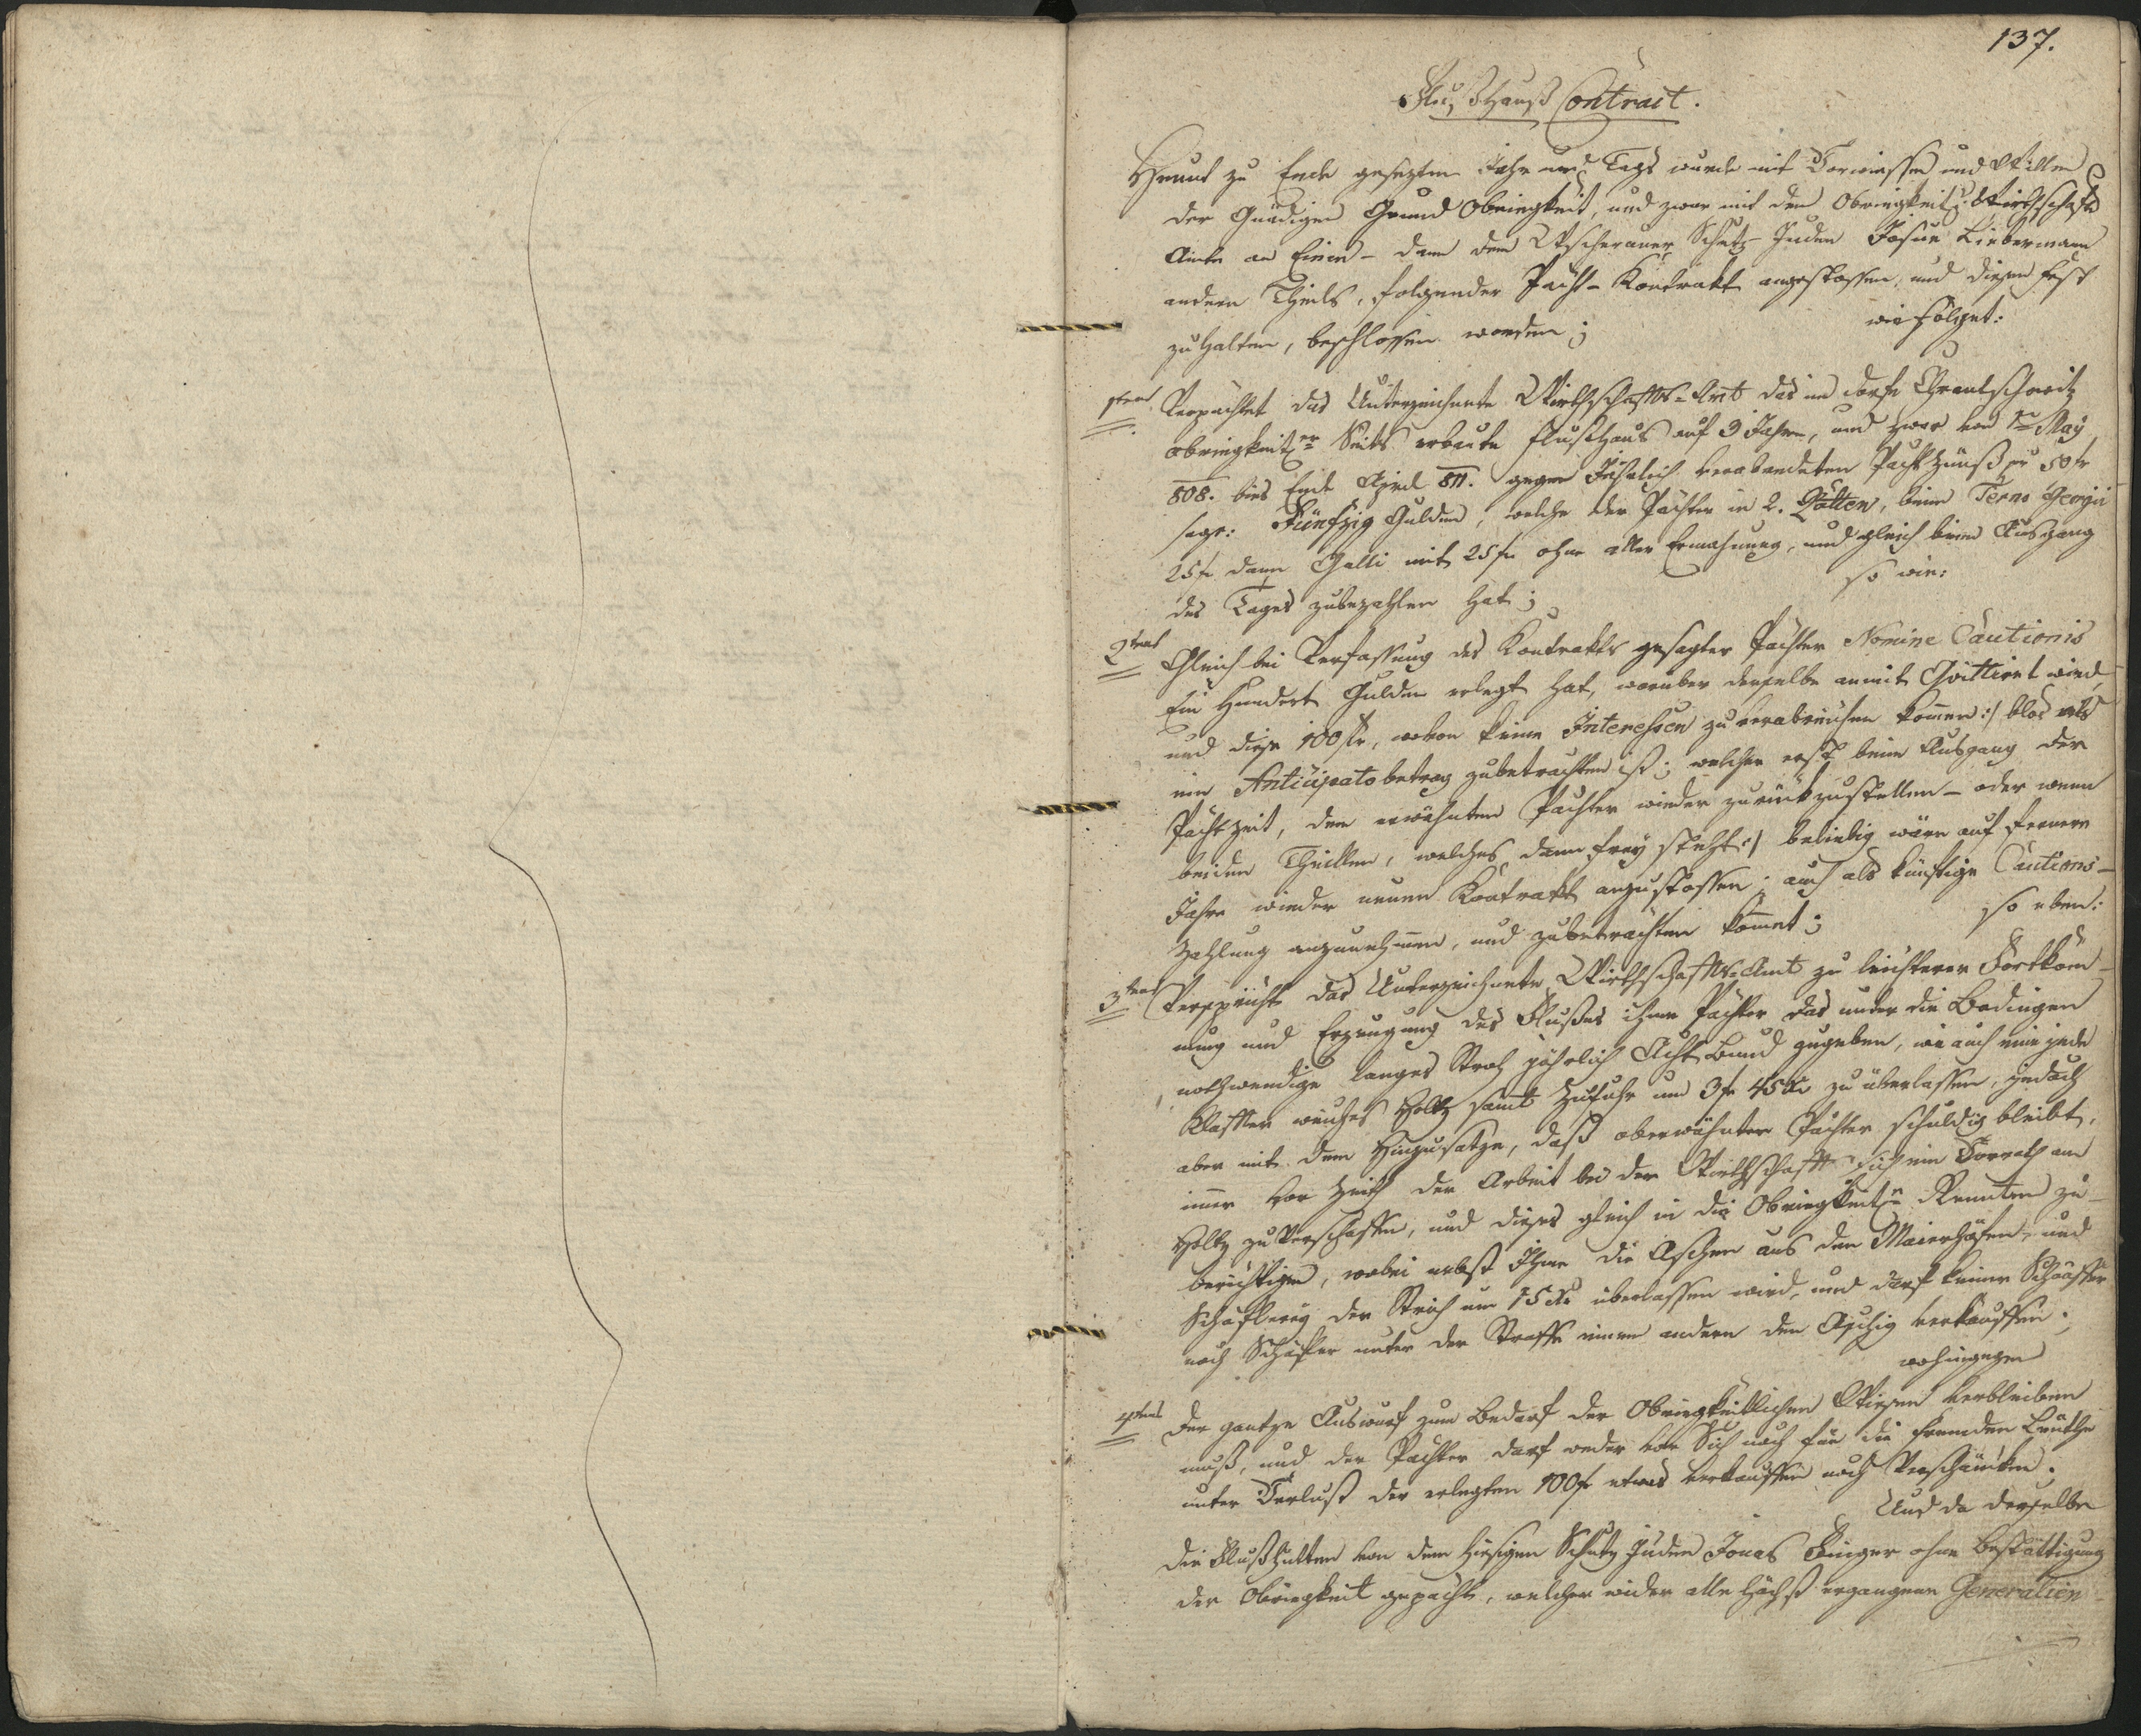 137.
Flußhauß Contract.
Heunt zu Ende gesezten Jahr und Tags wurde mit Vorwissen und Willen
der Gnädigen Grund Obriegkeit, und zwar mit dem Obriegkeitl. Wirthschafts
Amte an Einen – dann dem Schutz-Juden Josue Liebermann
andern Theils, folgender Pacht-Kontrakt angestossen, und diesen fest
zuhalten, beschlossen worden;
wie folget:
1tens Verpachtet das Unterzeichnete Wirthschafts-Amt das im dorfe
obriegkeitl. Seits erbaute Flußhaus auf 3 Jahre, und zwar von 1n May
808. bies Ende April 811. gegen Jährlich verabredeten Pachtzünß pr 50 fr
sage: Fünfzig Gulden, welche der Pächter in 2. Ratten, beim Termo Georgii
25 fr dann Galli mit 25 fr ohne aller Ermahnung, und gleich beim Ausgang
des Tages zubezahlen hat;
so wie:
2tens Gleich bei Verfassung des Kontrakts gesagter Pachter Nomine Cautionis
Ein Hundert Gulden erlegt hat, worüber derselbe anmit Quittiret wird,
und diese 100 fr, wovon keine Interessen zu verabreichen komen :/ blos als
ein Anticipato betrag zubetrachten ist; welcher erst beim Ausgang der
Pachtzeit, dem erwähnten Pachter wieder zurückzustellen – oder wenn
beiden Theillen, welches dann frey stehet :/ beliebig wäre auf fernere
Jahre wieder neuen Kontrakt anzustossen; auch als künftige Cautions-
Zahlung anzunehmen, und zubetrachten kommet;
so eben:
3tens Verspricht das Unterzeichnete Wirthschafts-Amt zu leichterer Fortkom-
nung und Erzeugung des Flußes ihme Pachter das unter die Bedingen
nothwendige langes Stroh jährlich Acht Bund zugeben, wie auch eine jede
Klaffter weiches Holtz samt Zufuhr um 3 fr 45 Xr zu überlassen, jedoch
aber mit dem Hinzusatze, daß oberwähnter Pachter schuldig bleibt,
imer vor Zeith der Arbeit bei der Wirthschaft sich ein Vorrath am
Holtz zu Verschaffen, und dieses gleich in die Obriegkeitl. Rennten zu-
berichtigen, wobei nebst Ihme die Aschen aus den Maierhöfen, und
Schäflerey der Strich um 15 Xr überlassen wird, und darf keiner Schaffer
noch Schäfler unter der Straffe einem andern den Aschig verkauffen;
wohingegen
4tens Der gantze Auswurf zum Bedarf der Obriegkeitlichen Wiesen verbleiben
muß, und der Pachter darf weder vor Sich noch für die fremden Leuthe
unter Verlust der erlegten 100 fr etwas verkauffen noch Verschänken;
Und da derselbe
die Flußhütten von dem hiesigen Schutz Juden Jonas Singer ohne Bestättigung
der Obriegkeit gepacht, welcher wider alle Höchst ergangenen Generalien